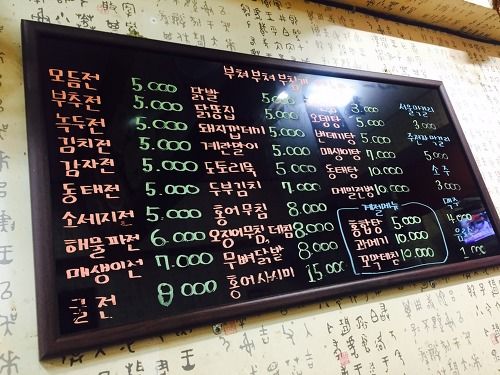 부쳐부쳐부침개
모듬전 5.000
부추전 5.000
녹두전 5.000
김치전 5.000
감자전 5.000
동태전 5.000
소세지전 5.000
해물파전 6.000
매생이전 7.000
굴전 8000
닭발 5.000
닭똥집 5.000
돼지껍데기 5.000
계란말이 5.000
도토리묵 5.000
두부김치 7.000
홍어무침 8.000
오징어무침,데침 8.000
무뼈닭발 8.000
홍어사시미 15.000
3.000
오뎅탕 5.000
번데기탕 5.000
매생이탕 7.000
동태탕 10.000
메밀전병 10.000
계절메뉴
홍합탕 5.000
과메기 10.000
꼬막데침 10.000
서울막걸리
3.000
막걸리
5.000
소주
3.000
맥주
4.000